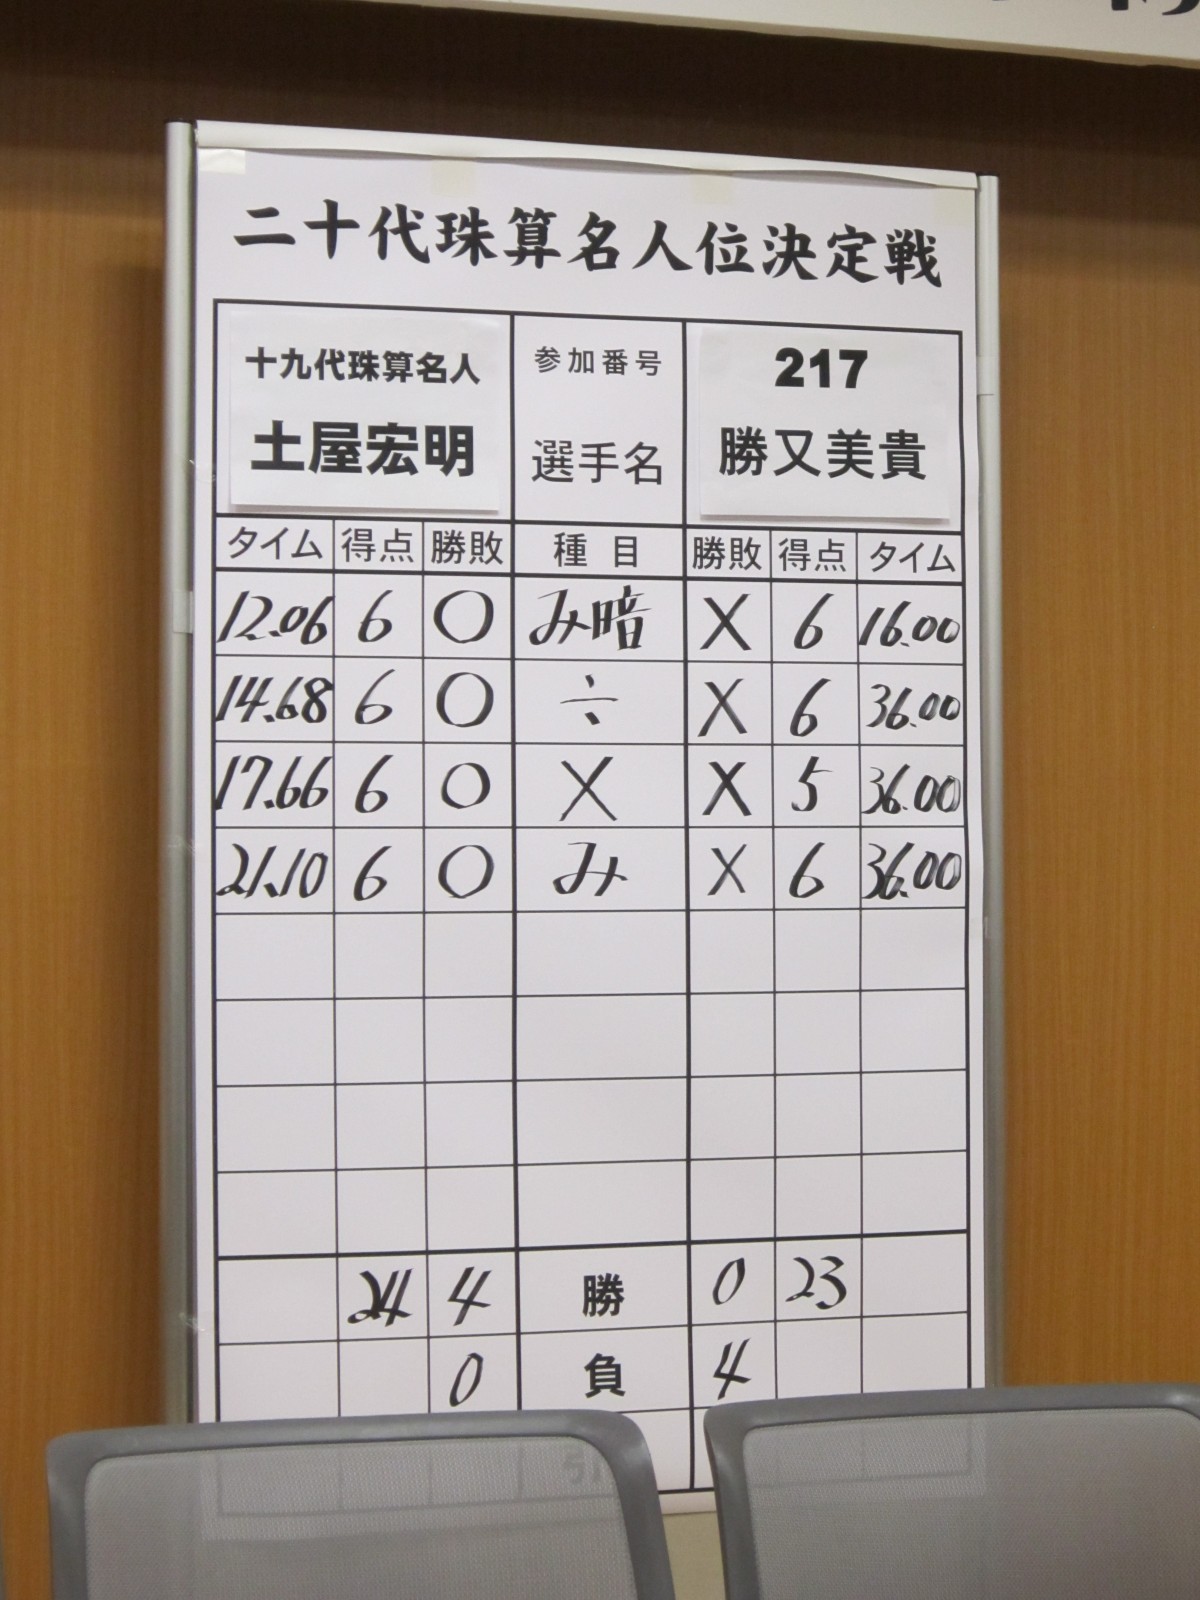 二十代珠算名人位決定戦
十九代珠算名人 参加番号 217
土屋宏明 選手名 勝又美貴
タイム 得点 勝敗 種目 勝敗 得点 タイム
12.06 6 ○ み暗 X 6 16.00
14.68 6 ○ ÷ X 6 36.00
17.66 6 ○ X X 5 36.00
21.10 6 ○ み X 6 36.00
24 4 勝 0 23
0 負 4